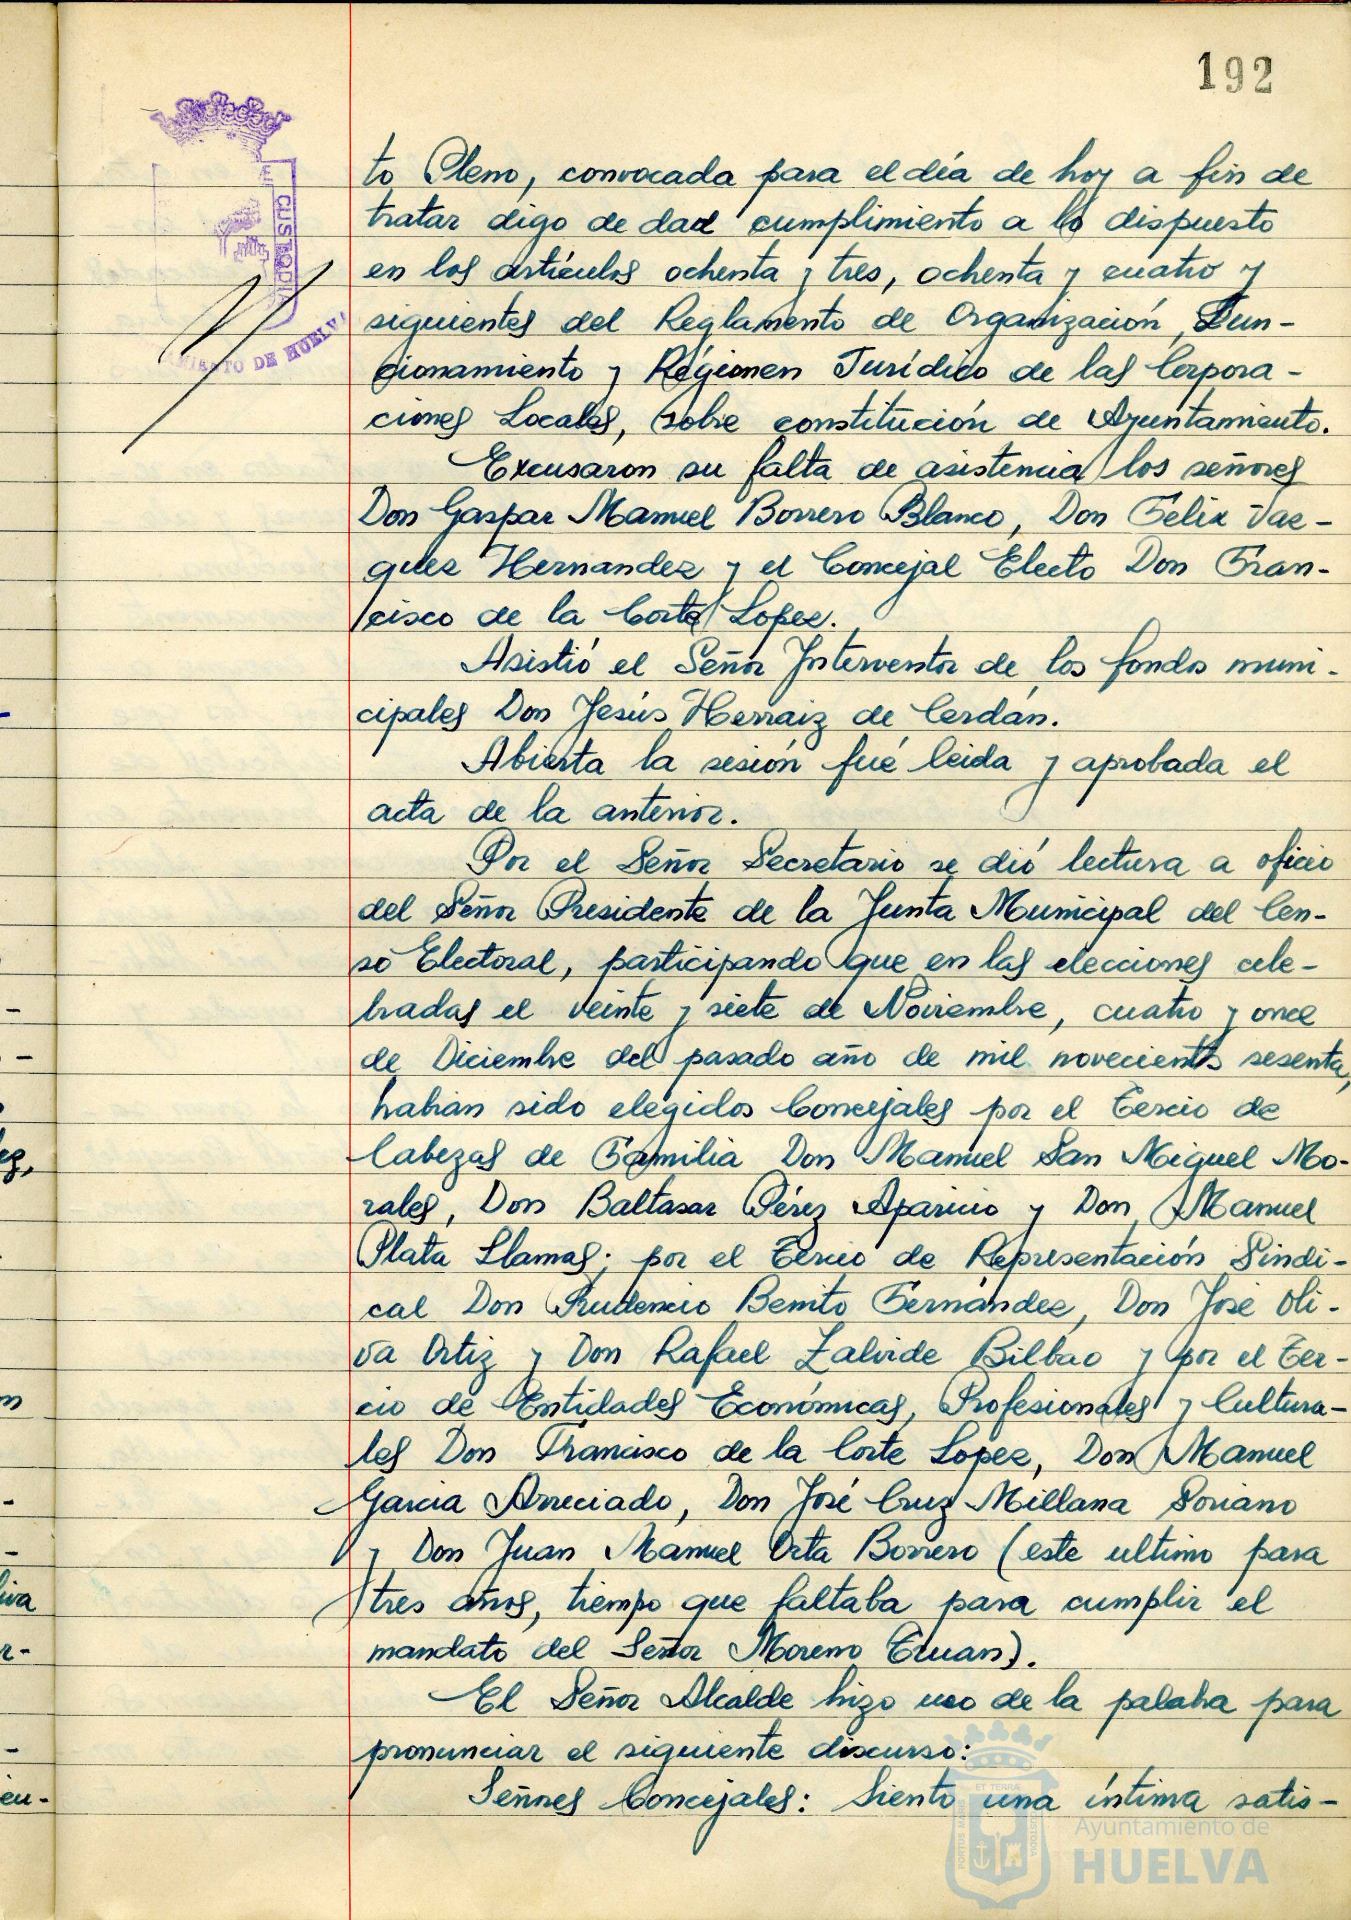 192
CUSTODIA
AMIENTO DE HUELVA
to Pleno, convocada para el día de hoy a fin de
tratar digo de dar cumplimiento a lo dispuesto
en los artículos ochenta y tres, ochenta y cuatro y
siguientes del Reglamento de Organización, Fun-
cionamiento y Régimen Jurídico de las Corpora-
ciones Locales, sobre constitución de Ayuntamiento.
Excusaron su falta de asistencia los señores
Don Gaspar Manuel Borrero Blanco, Don Félix Vaz-
quez Hernandez y el Concejal Electo Don Fran-
cisco de la Corte Lopez.
Asistió el Señor Interventor de los fondos muni-
cipales Don Jesús Herraiz de Cerdán.
Abierta la sesión fué leida y aprobada el
acta de la anterior.
Por el Señor Secretario se dió lectura a oficio
del Señor Presidente de la Junta Municipal del Cen-
so Electoral, participando que en las elecciones cele-
bradas el veinte y siete de Noviembre, cuatro y once
de Diciembre del pasado año de mil novecientos sesenta,
habian sido elegidos Concejales por el Tercio de
Cabezas de Familia Don Manuel San Miguel Mo-
rales, Don Baltasar Pérez Aparicio y Don Manuel
Plata Llamas; por el Tercio de Representación Sindi-
cal Don Prudencio Benito Fernández, Don José Oli-
va Ortiz y Don Rafael Zalvide Bilbao y por el Ter-
cio de Entidades Económicas, Profesionales y Cultura-
les Don Francisco de la Corte Lopez, Don Manuel
Garcia Arreciado, Don José Cruz Millana Soriano
y Don Juan Manuel Orta Borrero (este ultimo para
tres años, tiempo que faltaba para cumplir el
mandato del Señor Moreno Truan).
El Señor Alcalde hizo uso de la palabra para
pronunciar el siguiente discurso:
Señores Concejales: Siento una íntima satis-
ET TERRÆ
PORTUS MARIS
CUSTODIA
Ayuntamiento de
HUELVA